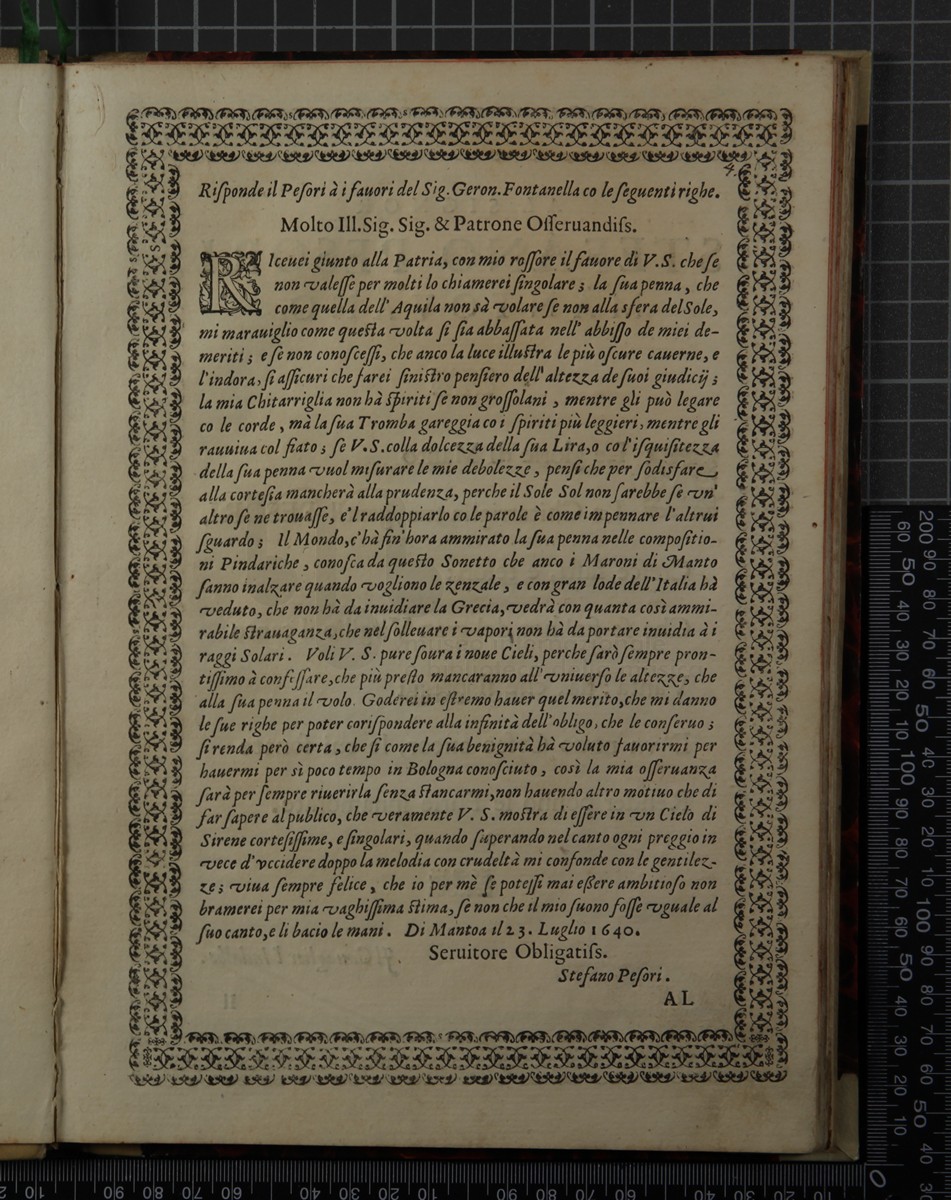 4.
Riſponde il Peſori à i fauori del Sig. Geron. Fontanella co le ſeguenti righe.
Molto Ill. Sig. Sig. & Patrone Oſſeruandiſs.
RIceuei giunto alla Patria, con mio roſſore il fauore di V.S. che ſe
non valeſſe per molti lo chiamerei ſingolare; la ſua penna, che
come quella dell' Aquila non sà volare ſe non alla sfera del Sole,
mi marauiglio come queſta volta ſi ſia abbaſſata nell' abbiſſo de miei de-
meriti; e ſe non conoſceſſi, che anco la luce illuſtra le più oſcure cauerne, e
l'indora, ſi aſſicuri che farei ſiniſtro penſiero dell' altezza de ſuoi giudicij;
la mia Chitarriglia non hà ſpiriti ſe non groſſolani, mentre gli può legare
co le corde, mà la ſua Tromba gareggia co i ſpiriti più leggieri, mentre gli
rauuiua col fiato; ſe V.S. colla dolcezza della ſua Lira, o co l'iſquiſitezza
della ſua penna vuol miſurare le mie debolezze, penſi che per ſodisfare
alla corteſia mancherà alla prudenza, perche il Sole Sol non ſarebbe ſe vn'
altro ſe ne trouaſſe, e'l raddoppiarlo co le parole è come impennare l'altrui
ſguardo; Il Mondo, c'hà fin' hora ammirato la ſua penna nelle compoſitio-
ni Pindariche, conoſca da queſto Sonetto che anco i Maroni di Manto
ſanno inalzare quando vogliono le zenzale, e con gran lode dell' Italia hà
veduto, che non hà da inuidiare la Grecia, vedrà con quanta così ammi-
rabile ſtrauaganza, che nel ſolleuare i vapori non hà da portare inuidia à i
raggi Solari. Voli V. S. pure ſoura i noue Cieli, perche ſarò ſempre pron-
tiſſimo à confeſſare, che più preſto mancaranno all' vniuerſo le altezze, che
alla ſua penna il volo. Goderei in eſtremo hauer quel merito, che mi danno
le ſue righe per poter coriſpondere alla infinità dell' obligo, che le conſeruo;
ſi renda però certa, che ſi come la ſua benignità hà voluto fauorirmi per
hauermi per sì poco tempo in Bologna conoſciuto, così la mia oſſeruanza
ſarà per ſempre riuerirla ſenza ſtancarmi, non hauendo altro motiuo che di
far ſapere al publico, che veramente V. S. moſtra di eſſere in vn Cielo di
Sirene corteſiſſime, e ſingolari, quando ſuperando nel canto ogni preggio in
vece d'vccidere doppo la melodia con crudeltà mi confonde con le gentilez-
ze; viua ſempre felice, che io per mè ſe poteſſi mai eßere ambitioſo non
bramerei per mia vaghiſſima ſtima, ſe non che il mio ſuono foſſe vguale al
ſuo canto, e li bacio le mani. Di Mantoa il 23. Luglio 1640.
Seruitore Obligatiſs.
Stefano Peſori.
AL